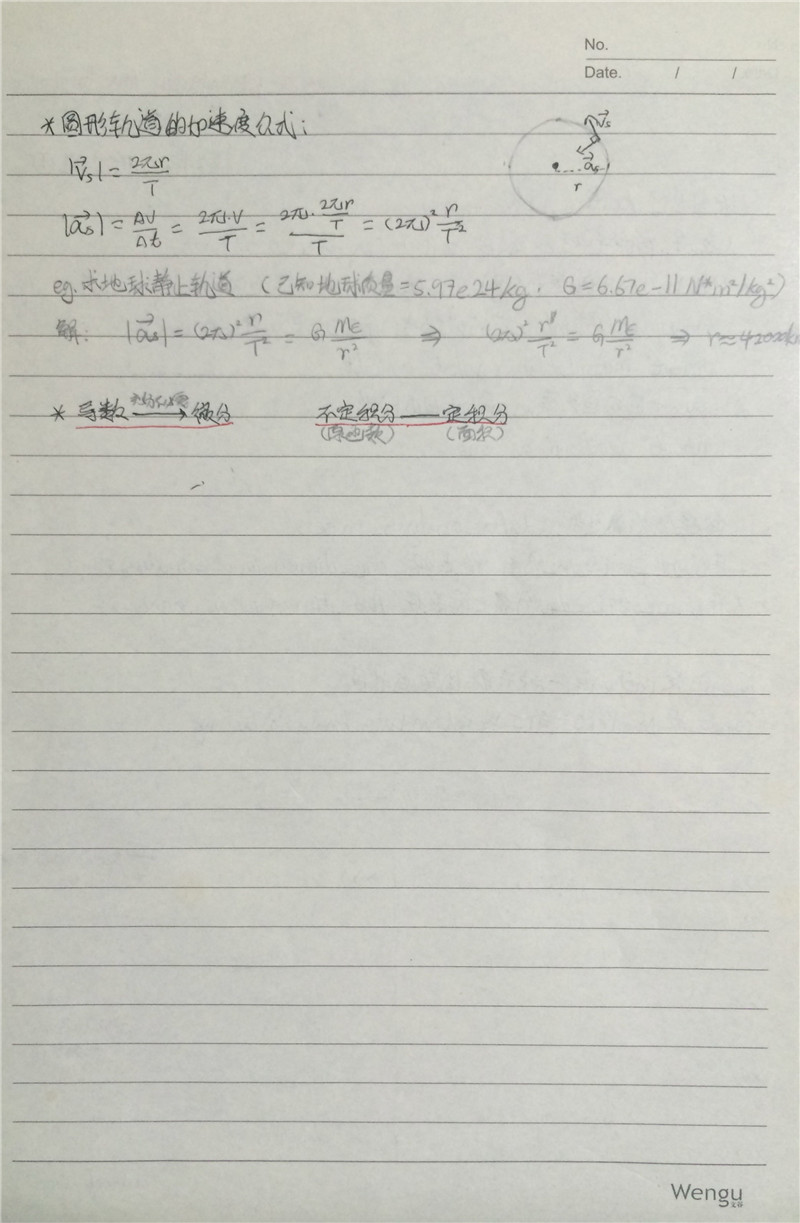 No.
Date. / /
*圆形轨道的加速度公式:
|v⃗s| = 2πr/T
|a⃗s| = Δv/Δt = 2π·v/T = (2π·2πr/T)/T = (2π)² r/T²
v⃗s
a⃗s
r
eg.求地球静止轨道 (已知地球质量=5.97e24kg, G=6.67e-11 N*m²/kg²)
解: |a⃗s| = (2π)² r/T² = G ME/r² ⇒ (2π)² r/T² = G ME/r² ⇒ r≈42
* 导数 → 微分 不定积分 — 定积分
(原函数) (面积)
Wengu
文谷